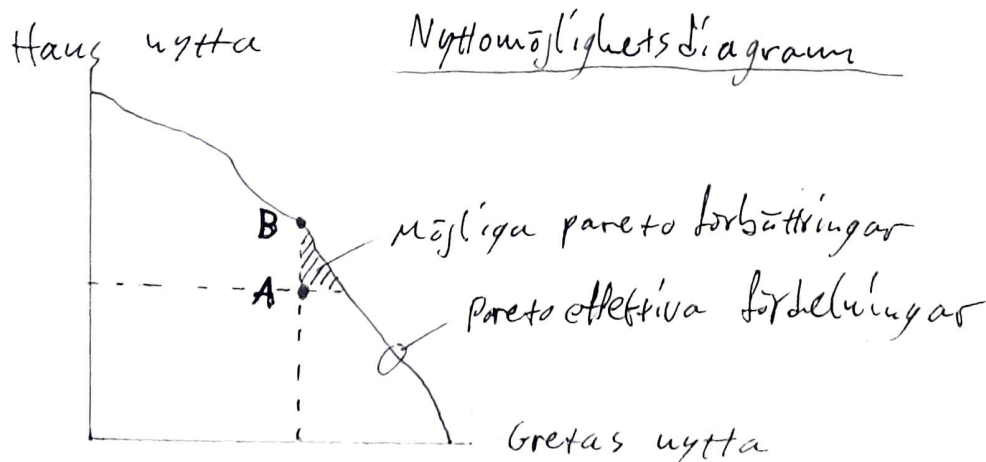 Nyttomöjlighetsdiagram
Hans nytta
B
Möjliga pareto förbättringar
A
Paretoeffektiva fördelningar
Gretas nytta